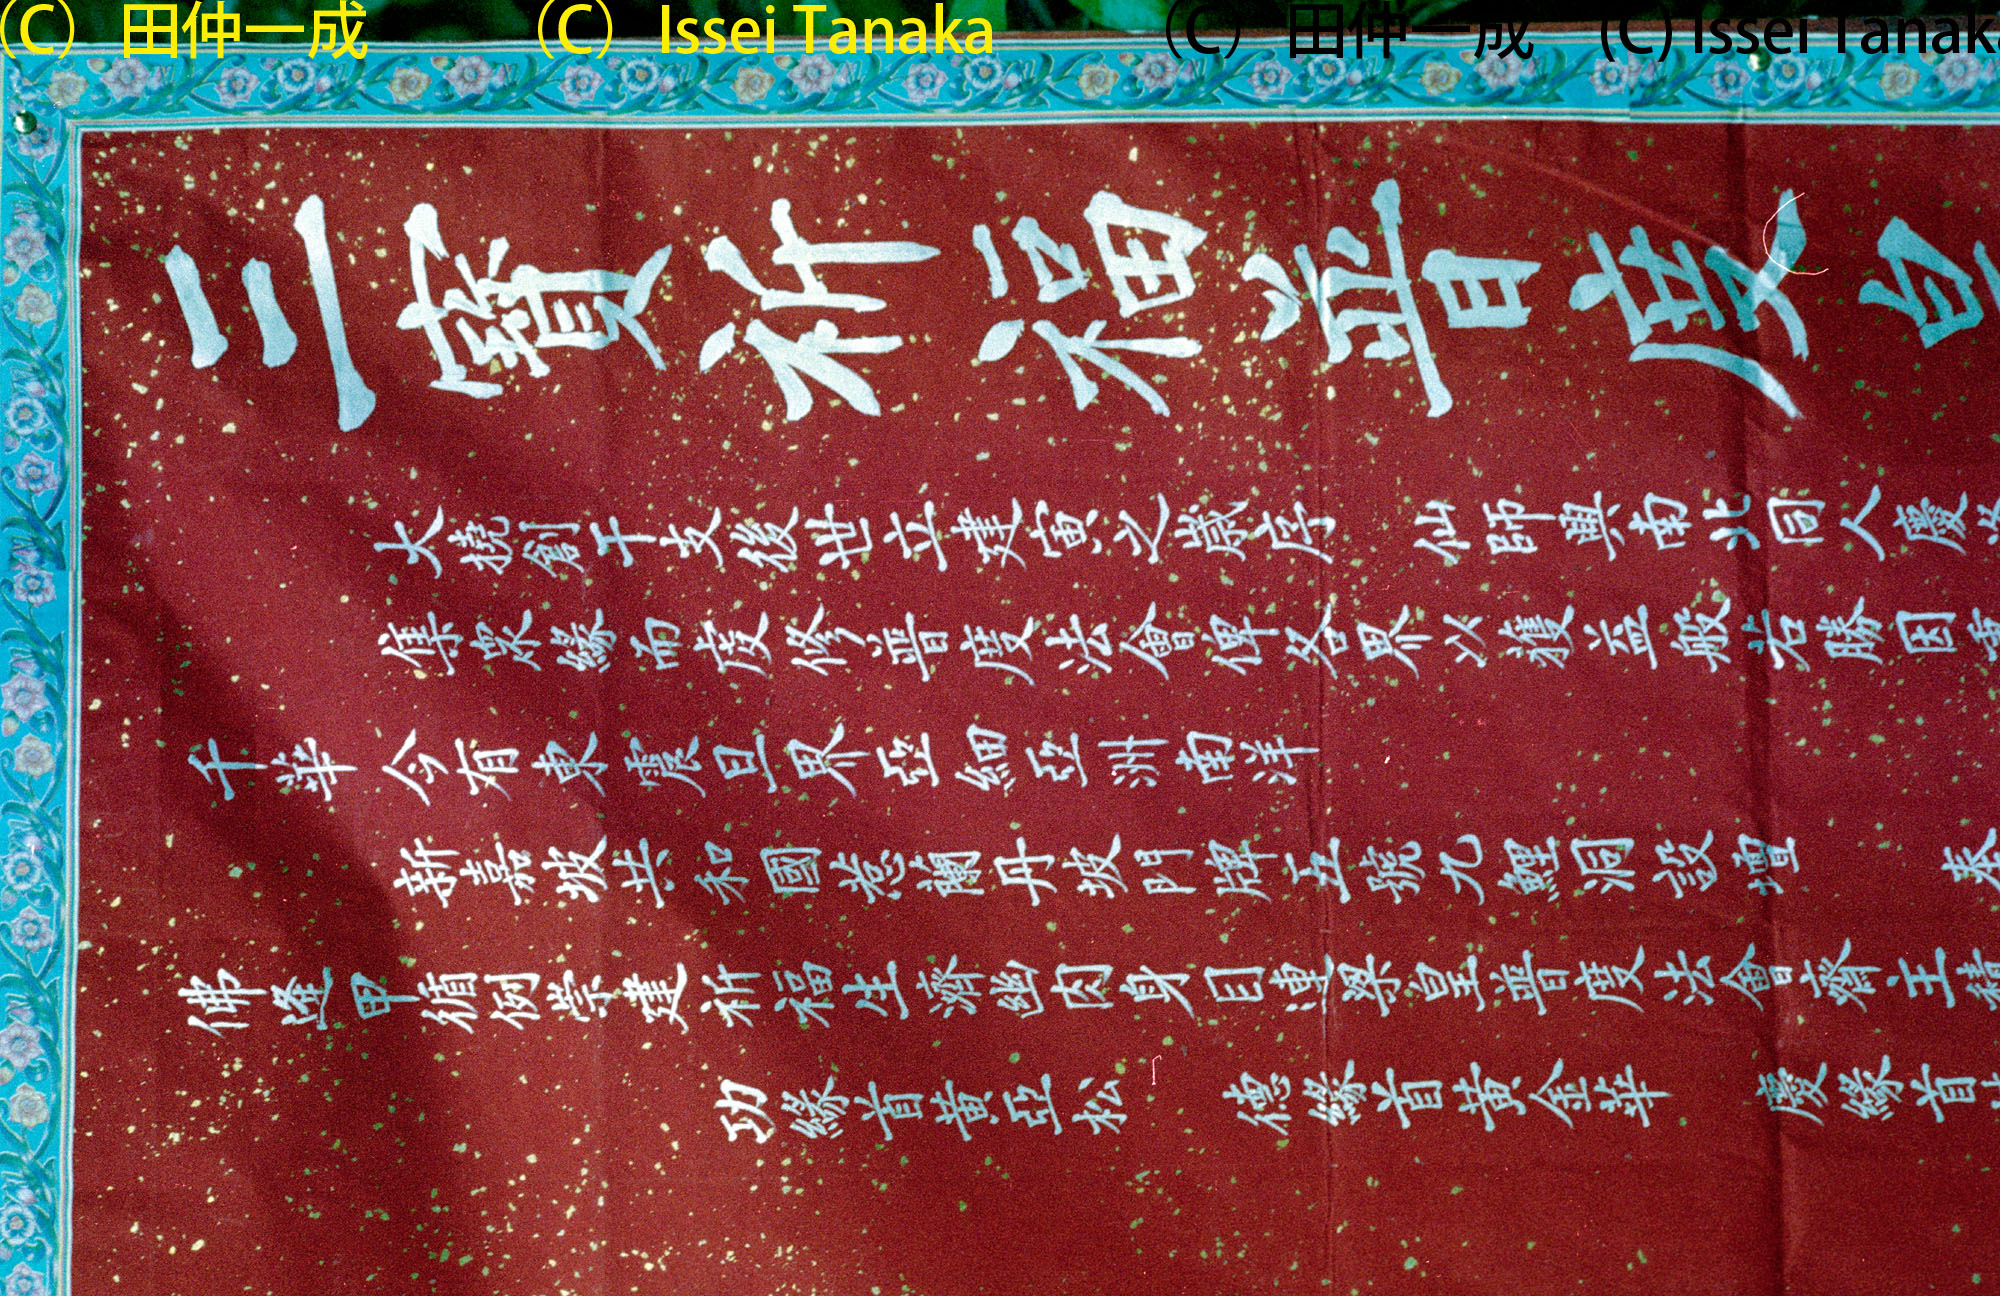 （C） 田仲一成 （C） Issei Tanaka （C） 田仲一成 (C) Issei Tanaka
三寶祈福普度
大撓創干支後世立建寅之歲序 仙師興南北同人慶
集眾緣而啓修普度法會俾各界以獲益般若勝因
千華 今有東震旦界亞細亞洲南洋
新嘉坡共和國惹蘭丹坡門牌五號九鯉洞設壇 奉
佛逢甲循例崇建祈福生齋幽肉身目連梁皇普度法會齋王
功緣首黃亞松 德緣首黃金華 慶緣首